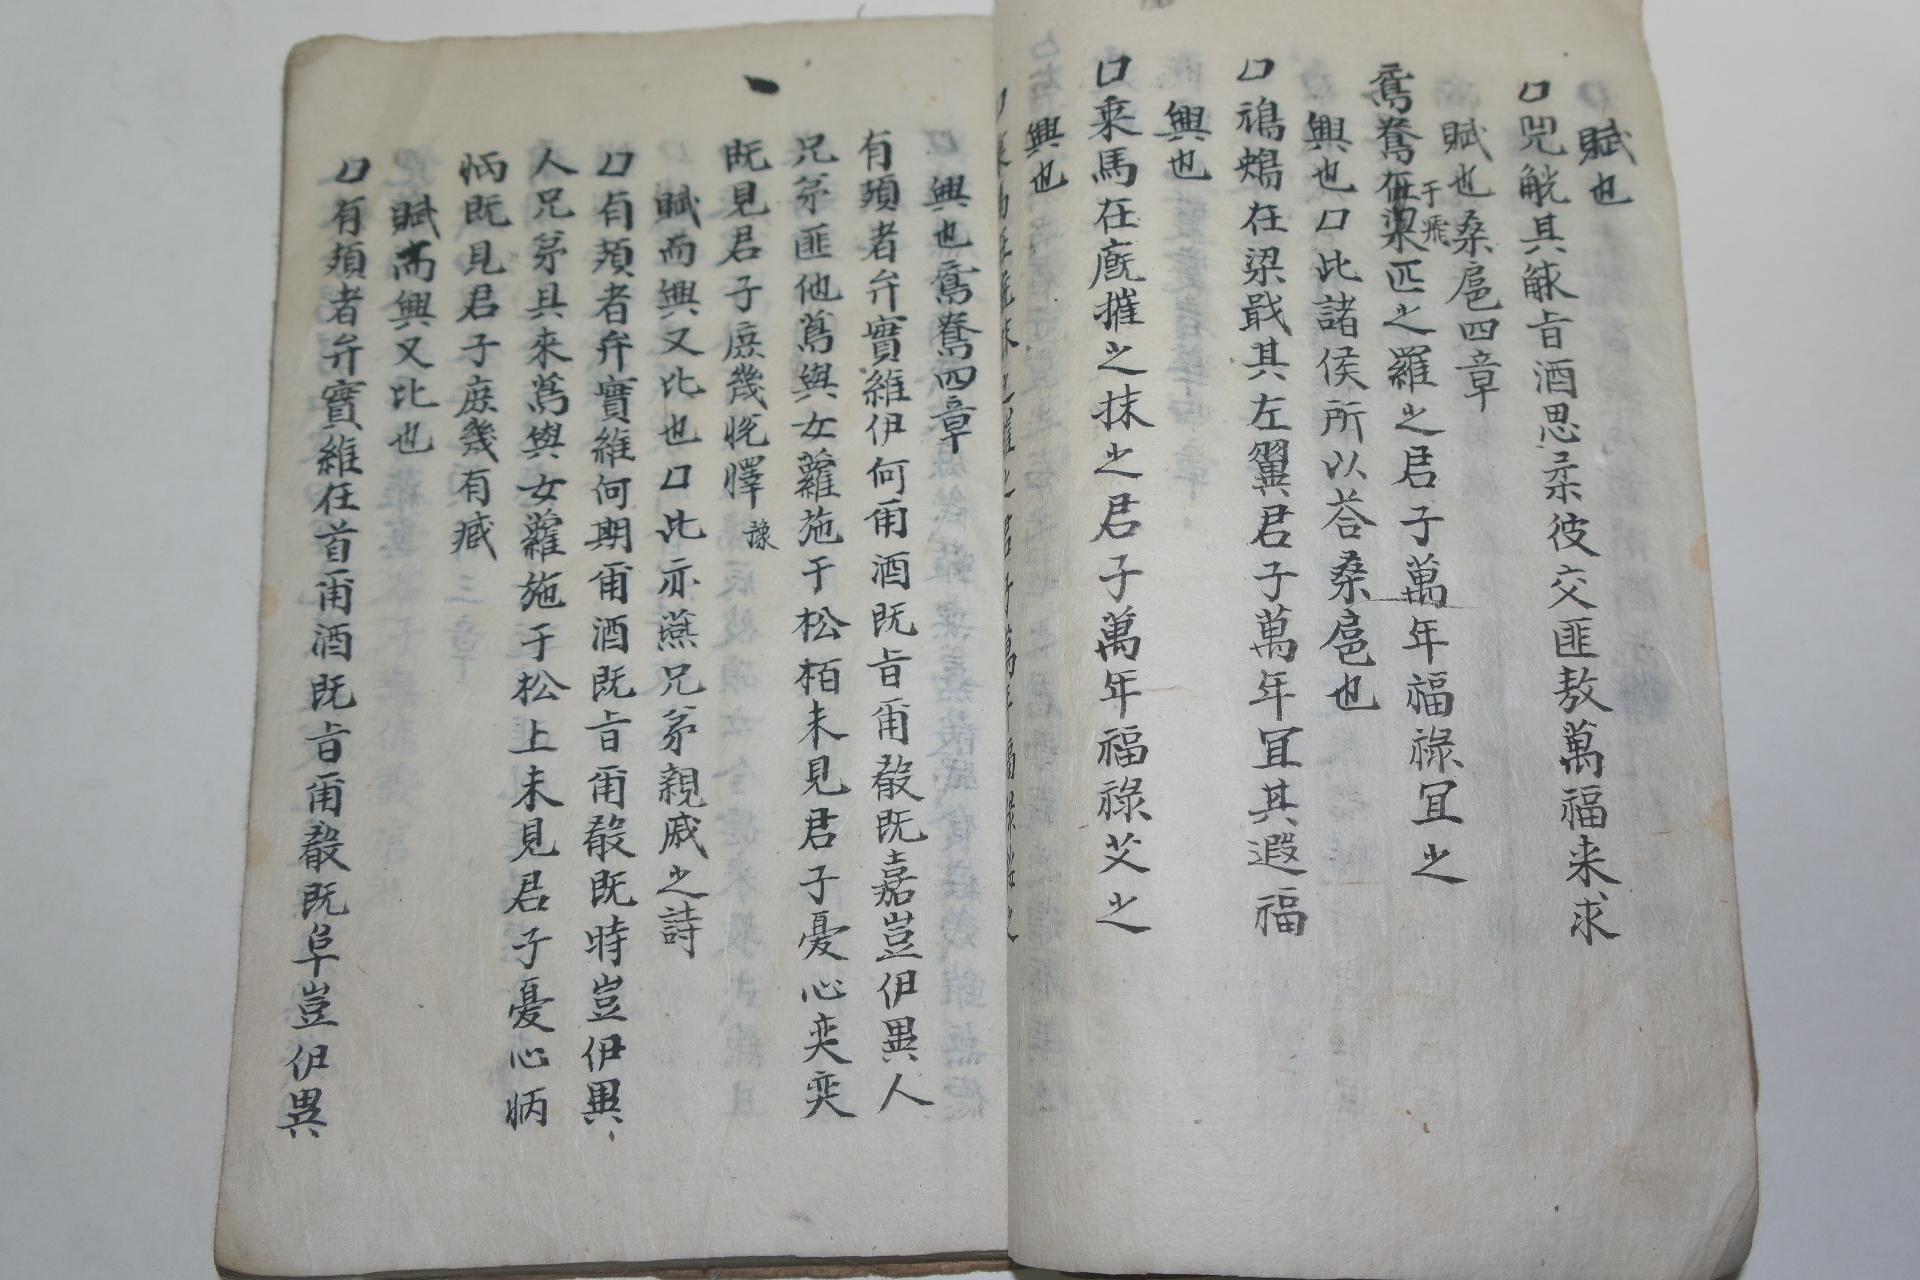 賦也
口兕觥其觩旨酒思柔彼交匪敖萬福来求
賦也桑扈四章
鴛鴦在梁匹之羅之君子萬年福祿冝之
于飛
興也口此諸侯所以荅桑扈也
口鴆鴆在梁戢其左翼君子萬年冝其遐福
興也
口乗馬在廐摧之抹之君子萬年福祿艾之
興也
興也鴛鴦四章
有頍者弁實維伊何甭酒既旨甭殽既嘉豈伊異人
兄苐匪他蔦與女蘿施于松栢未見君子憂心奕奕
既見君子庶幾悅懌
豫
賦而興又比也口此亦燕兄苐親戚之詩
口有頍者弁實維何期甭酒既旨甭殽既時豈伊異
人兄苐具来蔦與女蘿施于松上未見君子憂心怲
怲既見君子庶幾有臧
賦而興又比也
口有頍者弁實維在首甭酒既旨甭殽既阜豈伊異